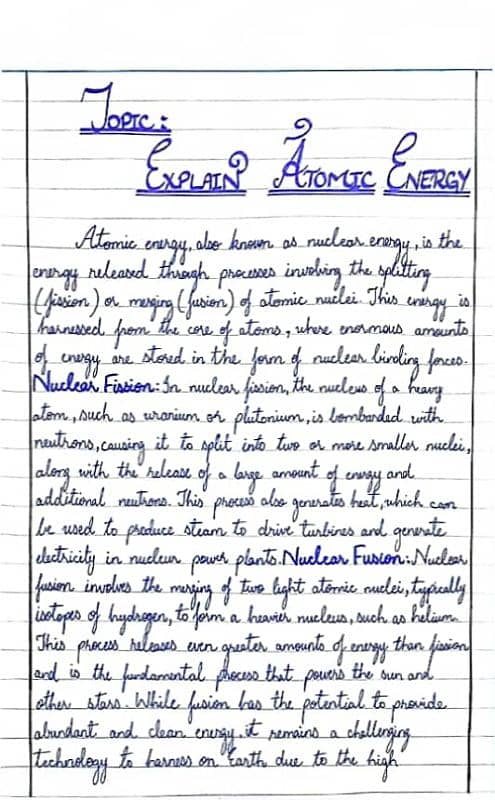 TOPIC:
EXPLAIN ATOMIC ENERGY
Atomic energy, also known as nuclear energy, is the
energy released through processes involving the splitting
(fission) or merging (fusion) of atomic nuclei. This energy is
harnessed from the core of atoms, where enormous amounts
of energy are stored in the form of nuclear binding forces.
Nuclear Fission: In nuclear fission, the nucleus of a heavy
atom, such as uranium or plutonium, is bombarded with
neutrons, causing it to split into two or more smaller nuclei,
along with the release of a large amount of energy and
additional neutrons. This process also generates heat, which can
be used to produce steam to drive turbines and generate
electricity in nuclear power plants. Nuclear Fusion: Nuclear
fusion involves the merging of two light atomic nuclei, typically
isotopes of hydrogen, to form a heavier nucleus, such as helium.
This process releases even greater amounts of energy than fission
and is the fundamental process that powers the sun and
other stars. While fusion has the potential to provide
abundant and clean energy, it remains a challenging
technology to harness on Earth due to the high